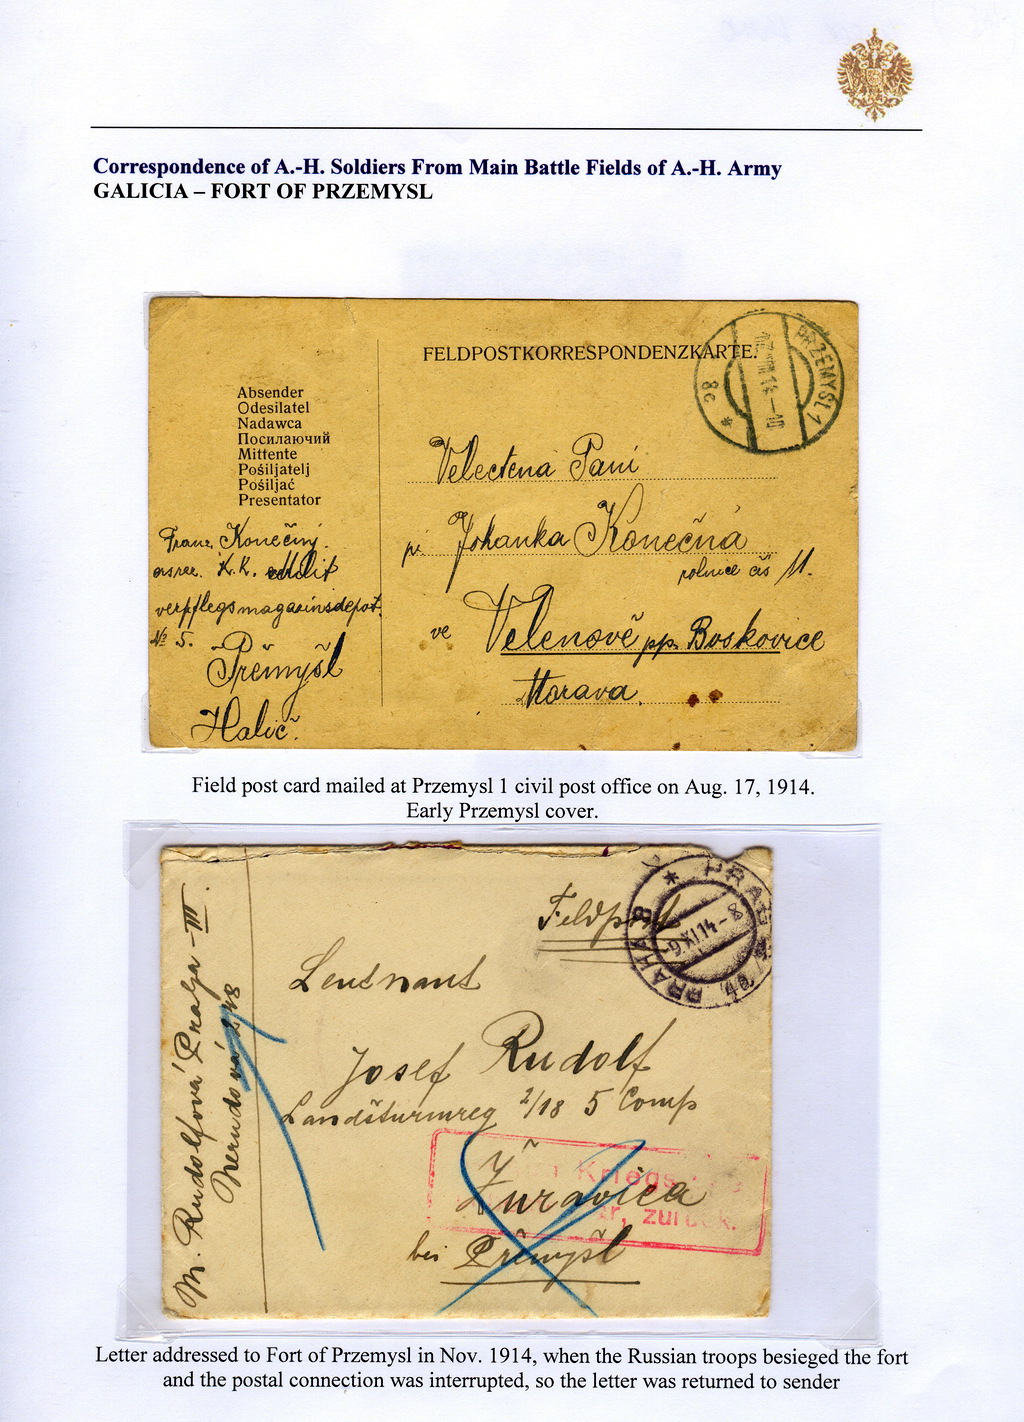 Correspondence of A.-H. Soldiers From Main Battle Fields of A.-H. Army
GALICIA – FORT OF PRZEMYSL
FELDPOSTKORRESPONDENZKARTE.
PRZEMYŚL 1
8c
*
Absender
Odesilatel
Nadawca
Посилаючий
Mittente
Pošiljatelj
Pošiljač
Presentator
Franz Konečný.
K.K.
verpflegsmagazinsdepot.
№ 5.
Přemyšl
Halič.
Velectěná Paní
pí. Johanka Konečná
rolnice čís 11.
ve Velenově pp. Boskovice
Morava.
Field post card mailed at Przemysl 1 civil post office on Aug. 17, 1914.
Early Przemysl cover.
Feldpost
PRAHA 8
-9 XI 14 - 8
M. Rudolfová Praha - III.
Nerudova
Leutnant
Josef Rudolf
Landšturmreg 2/18 5 Comp
Žuravica
bei Přemyšl
Kriegs
zurück.
Letter addressed to Fort of Przemysl in Nov. 1914, when the Russian troops besieged the fort
and the postal connection was interrupted, so the letter was returned to sender